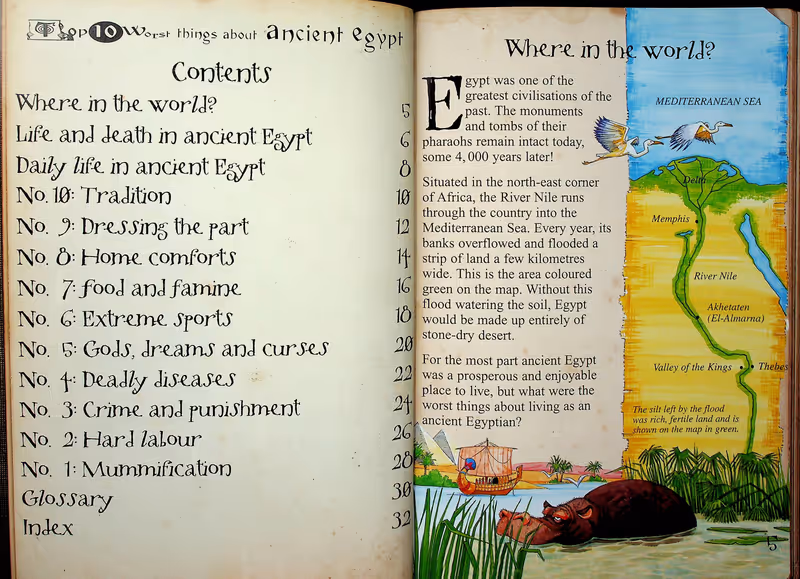 Top 10 Worst things about ancient egypt
Contents
Where in the world? 5
Life and death in ancient Egypt 6
Daily life in ancient Egypt 8
No. 10: Tradition 10
No. 9: Dressing the part 12
No. 8: Home comforts 14
No. 7: food and famine 16
No. 6: Extreme sports 18
No. 5: Gods, dreams and curses 20
No. 4: Deadly diseases 22
No. 3: Crime and punishment 24
No. 2: Hard labour 26
No. 1: Mummification 28
Glossary 30
Index 32
Where in the world?
Egypt was one of the
greatest civilisations of the
past. The monuments
and tombs of their
pharaohs remain intact today,
some 4,000 years later!
Situated in the north-east corner
of Africa, the River Nile runs
through the country into the
Mediterranean Sea. Every year, its
banks overflowed and flooded a
strip of land a few kilometres
wide. This is the area coloured
green on the map. Without this
flood watering the soil, Egypt
would be made up entirely of
stone-dry desert.
For the most part ancient Egypt
was a prosperous and enjoyable
place to live, but what were the
worst things about living as an
ancient Egyptian?
MEDITERRANEAN SEA
Delta
Memphis
River Nile
Akhetaten
(El-Almarna)
Valley of the Kings
Thebes
The silt left by the flood
was rich, fertile land and is
shown on the map in green.
5